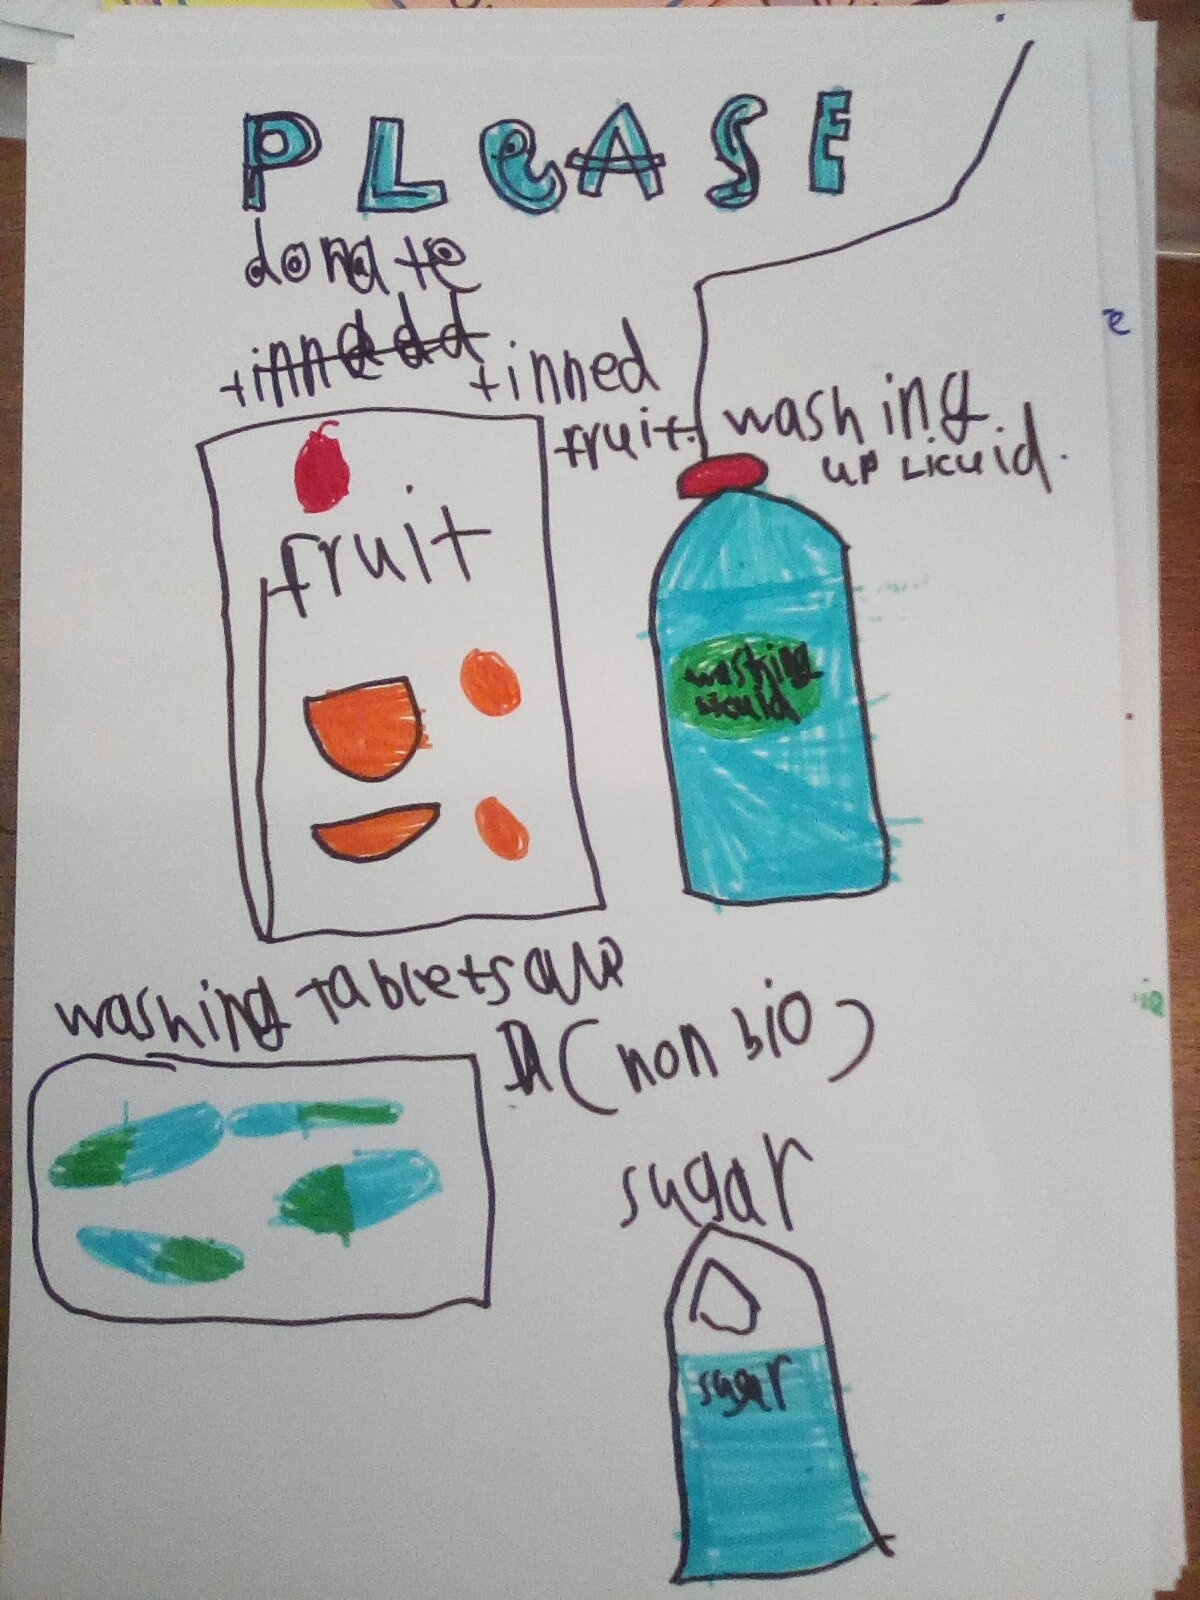 PLeASE
donate
tinned
fruit.
washing
up Licuid.
fruit
washing
licuid
washing Tablets
(non bio)
sugar
sugar
e